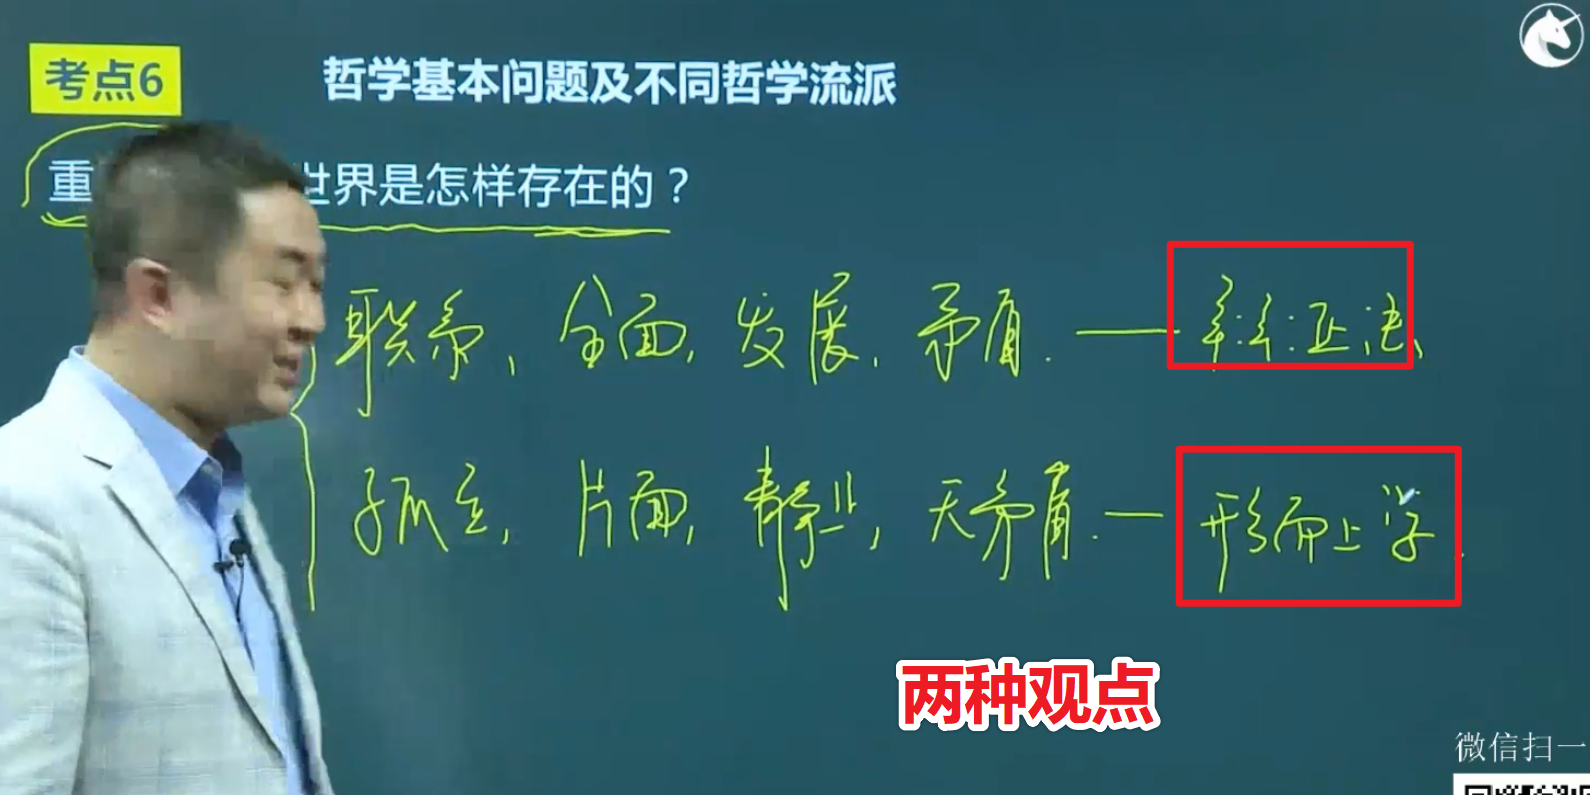 考点6
哲学基本问题及不同哲学流派
重 世界是怎样存在的？
联系、全面、发展、矛盾. — 辩证法
孤立, 片面, 静止, 无矛盾. — 形而上学.
两种观点
微信扫一